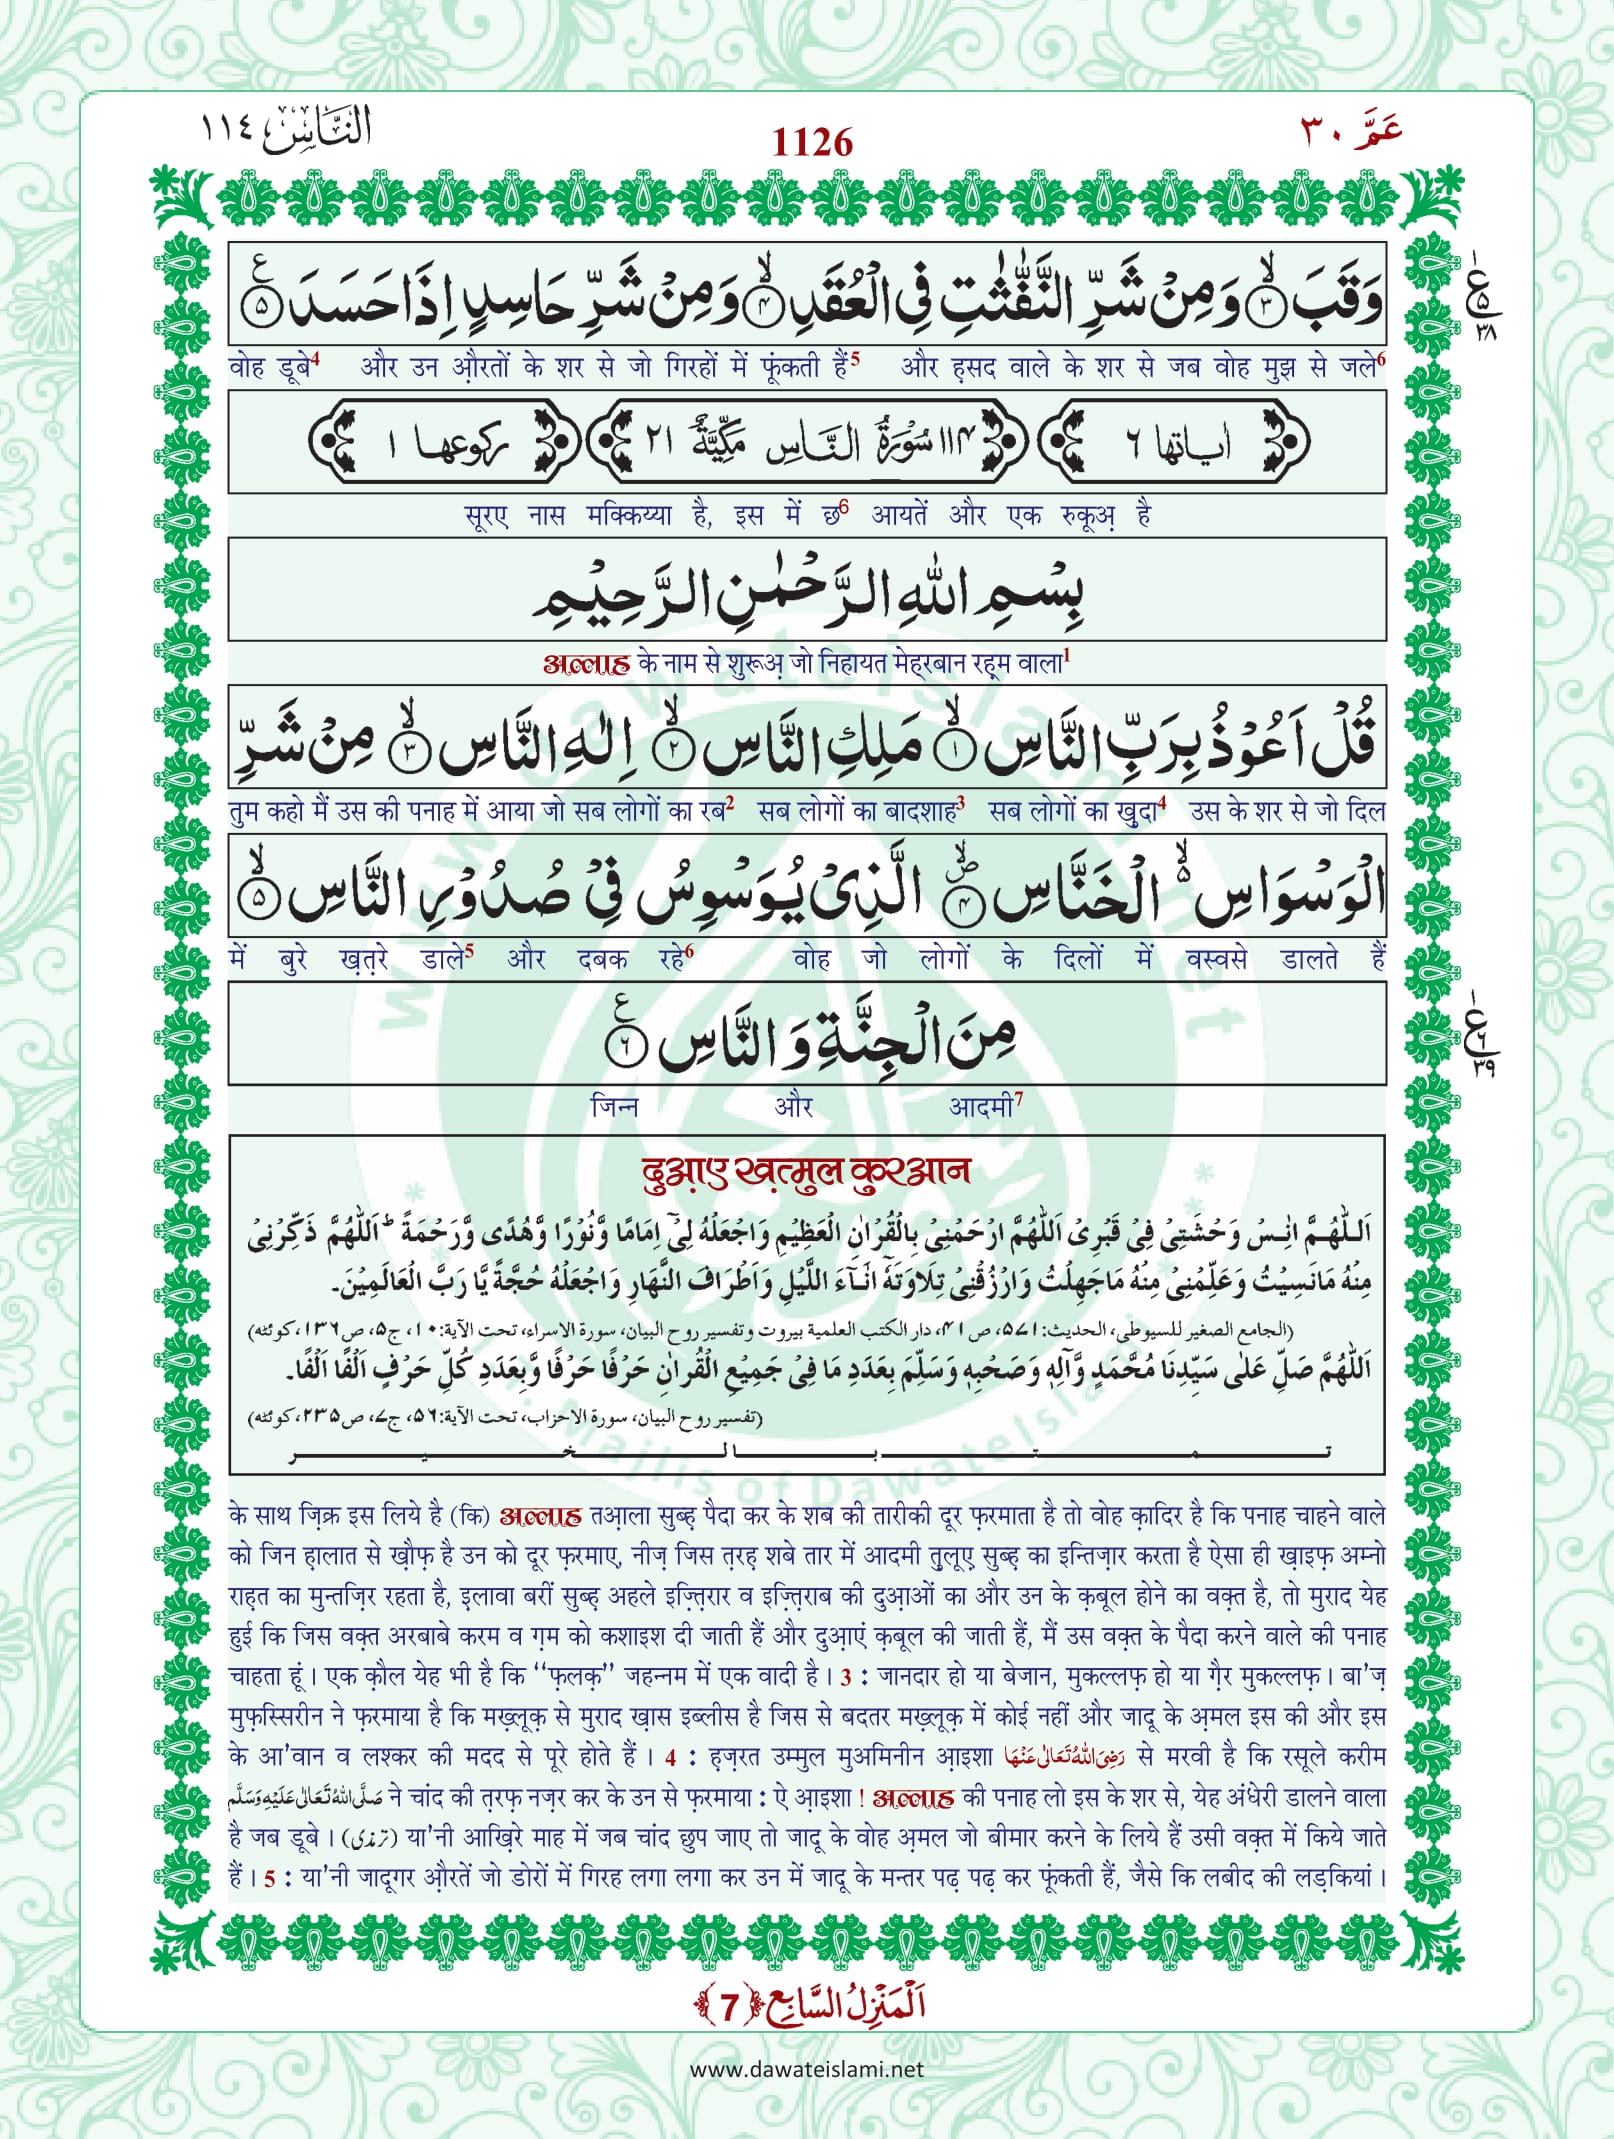 النَّاس ١١٤
1126
عَمَّ ٣٠
وَقَبَ ۙ﴿۳﴾ وَمِنْ شَرِّ النَّفّٰثٰتِ فِی الْعُقَدِ ۙ﴿۴﴾ وَمِنْ شَرِّ حَاسِدٍ اِذَا حَسَدَ ﴿۵﴾ ع
ع ۵ ۳۸
वोह डूबे4 और उन औ़रतों के शर से जो गिरहों में फूंकती हैं5 और ह़सद वाले के शर से जब वोह मुझ से जले6
اٰیاتها ٦
١١٤ سُوْرَةُ النَّاسِ مَكِّيَّةٌ ٢١
ركوعها ١
सूरए नास मक्किय्या है, इस में छ6 आयतें और एक रुकूअ़ है
بِسْمِ اللّٰهِ الرَّحْمٰنِ الرَّحِیْمِ
अल्लाह के नाम से शुरूअ़ जो निहायत मेह्‌रबान रह़्म वाला1
قُلْ اَعُوْذُ بِرَبِّ النَّاسِ ۙ﴿۱﴾ مَلِكِ النَّاسِ ۙ﴿۲﴾ اِلٰهِ النَّاسِ ۙ﴿۳﴾ مِنْ شَرِّ
तुम कहो मैं उस की पनाह में आया जो सब लोगों का रब2 सब लोगों का बादशाह3 सब लोगों का ख़ुदा4 उस के शर से जो दिल
الْوَسْوَاسِ ۙ۬ الْخَنَّاسِ ۪ۙ﴿۴﴾ الَّذِیْ یُوَسْوِسُ فِیْ صُدُوْرِ النَّاسِ ۙ﴿۵﴾
में बुरे ख़त़रे डाले5 और दबक रहे6 वोह जो लोगों के दिलों में वस्वसे डालते हैं
مِنَ الْجِنَّةِ وَ النَّاسِ ﴿۶﴾ ع
ع ٦ ۳۹
जिन्न और आदमी7
दुआ़ए ख़त्मुल क़ुरआन
اَللّٰهُمَّ اٰنِسْ وَحْشَتِیْ فِیْ قَبْرِیْ اَللّٰهُمَّ ارْحَمْنِیْ بِالْقُرْاٰنِ الْعَظِیْمِ وَاجْعَلْهُ لِیْۤ اِمَامًا وَّنُوْرًا وَّهُدًی وَّرَحْمَةً ؕ اَللّٰهُمَّ ذَكِّرْنِیْ
مِنْهُ مَانَسِیْتُ وَعَلِّمْنِیْ مِنْهُ مَاجَهِلْتُ وَارْزُقْنِیْ تِلَاوَتَهٗۤ اٰنَآءَ اللَّیْلِ وَاَطْرَافَ النَّهَارِ وَاجْعَلْهُ حُجَّةً یَّا رَبَّ الْعَالَمِیْنَ۔
(الجامع الصغير للسيوطى، الحديث: ٥٧١، ص ٤١، دار الكتب العلمية بيروت وتفسير روح البيان، سورة الاسراء، تحت الآية: ١٠، ج٥، ص١٣٦، كوئٹه)
اَللّٰهُمَّ صَلِّ عَلٰی سَیِّدِنَا مُحَمَّدٍ وَّاٰلِهٖ وَصَحْبِهٖ وَسَلِّمَ بِعَدَدِ مَا فِیْ جَمِیْعِ الْقُرْاٰنِ حَرْفًا حَرْفًا وَّبِعَدَدِ كُلِّ حَرْفٍ اَلْفًا اَلْفًا۔
(تفسير روح البيان، سورة الاحزاب، تحت الآية: ٥٦، ج٧، ص٢٣٥، كوئٹه)
تـــمـــت بـــالـــخـــيـــر
के साथ ज़िक्र इस लिये है (कि) अल्लाह तआ़ला सुब्ह़ पैदा कर के शब की तारीकी दूर फ़रमाता है तो वोह क़ादिर है कि पनाह चाहने वाले
को जिन ह़ालात से ख़ौफ़ है उन को दूर फ़रमाए, नीज़ जिस त़रह़ शबे तार में आदमी त़ुलूए़ सुब्ह़ का इन्तिज़ार करता है ऐसा ही ख़ाइफ़ अम्नो
राह़त का मुन्तज़िर रहता है, इलावा बरीं सुब्ह़ अहले इज़्त़िरार व इज़्त़िराब की दुआ़ओं का और उन के क़बूल होने का वक़्त है, तो मुराद येह
हुई कि जिस वक़्त अरबाबे करम व ग़म को कशाइश दी जाती हैं और दुआ़एं क़बूल की जाती हैं, मैं उस वक़्त के पैदा करने वाले की पनाह
चाहता हूं । एक क़ौल येह भी है कि ‘‘फ़लक़’’ जहन्नम में एक वादी है । 3 : जानदार हो या बेजान, मुकल्लफ़ हो या ग़ैर मुकल्लफ़ । बा’ज़
मुफ़स्सिरीन ने फ़रमाया है कि मख़्लूक़ से मुराद ख़ास इब्लीस है जिस से बदतर मख़्लूक़ में कोई नहीं और जादू के अ़मल इस की और इस
के आ’वान व लश्कर की मदद से पूरे होते हैं । 4 : ह़ज़रत उम्मुल मुअमिनीन आ़इशा رَضِیَ اللّٰهُ تَعَالٰی عَنْهَا से मरवी है कि रसूले करीम
صَلَّی اللّٰهُ تَعَالٰی عَلَیْهِ وَسَلَّم ने चांद की त़रफ़ नज़र कर के उन से फ़रमाया : ऐ आ़इशा ! अल्लाह की पनाह लो इस के शर से, येह अंधेरी डालने वाला
है जब डूबे । (ترمذی) या’नी आख़िरे माह में जब चांद छुप जाए तो जादू के वोह अ़मल जो बीमार करने के लिये हैं उसी वक़्त में किये जाते
हैं । 5 : या’नी जादूगर औ़रतें जो डोरों में गिरह लगा लगा कर उन में जादू के मन्तर पढ़ पढ़ कर फूंकती हैं, जैसे कि लबीद की लड़कियां ।
اَلْمَنْزِلُ السَّابِع ﴿7﴾
www.dawateislami.net